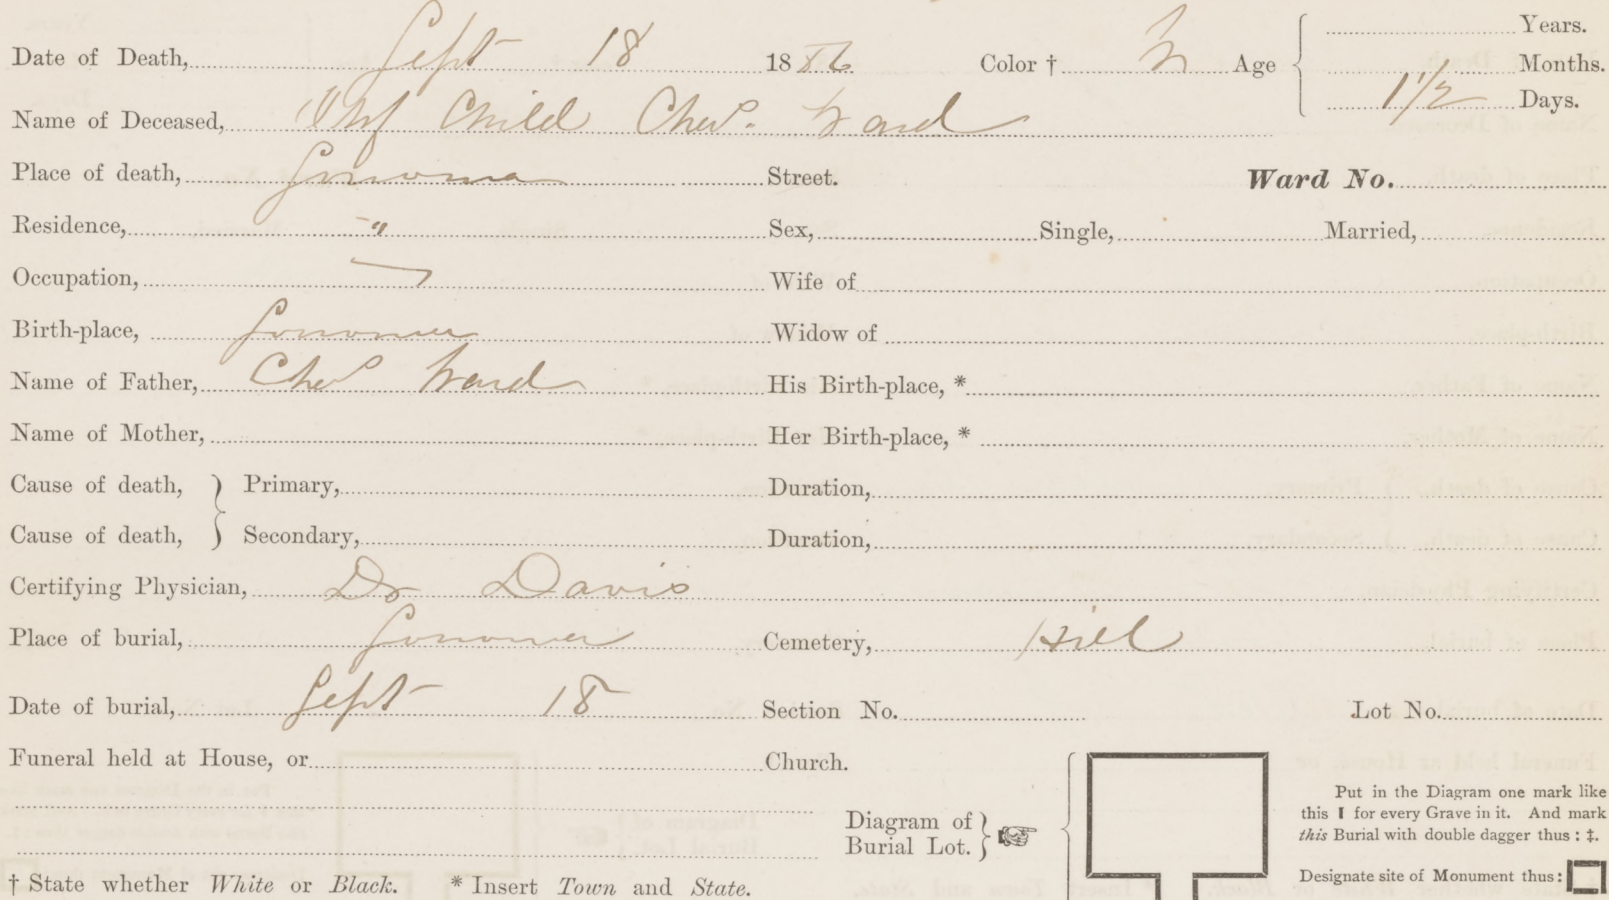 Date of Death, Sept 18 1886 Color † W Age Years.
Months.
1 1/2 Days.
Name of Deceased, Inf Child Chas. Ward
Place of death, Sonoma Street. Ward No.
Residence, " Sex, Single, Married,
Occupation, Wife of
Birth-place, Sonoma Widow of
Name of Father, Chas Ward His Birth-place, *
Name of Mother, Her Birth-place, *
Cause of death, } Primary, Duration,
Cause of death, } Secondary, Duration,
Certifying Physician, Dr Davis
Place of burial, Sonoma Cemetery, Hill
Date of burial, Sept 18 Section No. Lot No.
Funeral held at House, or Church.
Diagram of
Burial Lot.
Put in the Diagram one mark like
this I for every Grave in it. And mark
this Burial with double dagger thus : ‡.
Designate site of Monument thus :
† State whether White or Black. * Insert Town and State.